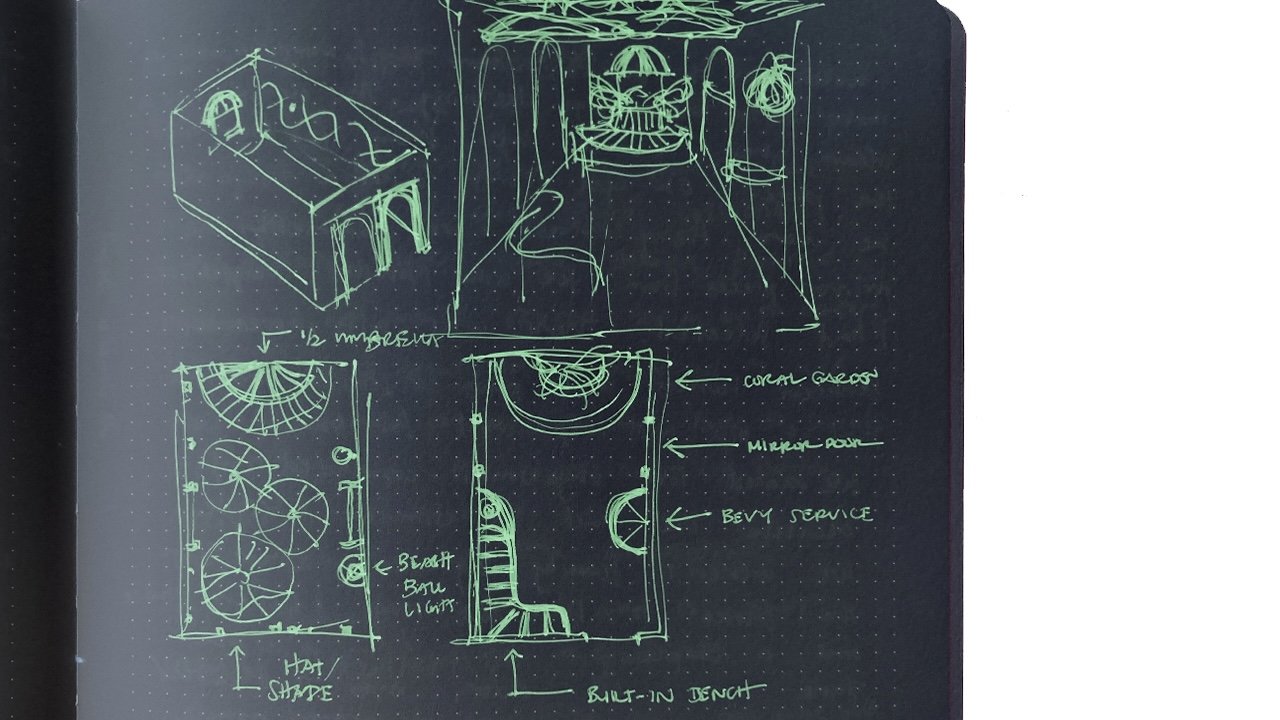 1/2 UMBRELLA
CORAL GARDEN
MIRROR DOOR
BEVY SERVICE
BEACH
BALL
LIGHT
HAT/
SHADE
BUILT-IN BENCH